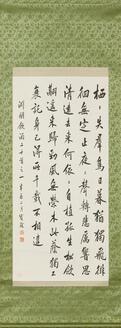 栖〻失群鳥日暮猶獨飛徘
徊無定止夜〻聲轉悲厲響思
清遠去來何依〻因值孤生松斂
翮遥來歸勁風無榮木此蔭獨不
衰託身已得所千載不相違
淵明飲酒二十首之一